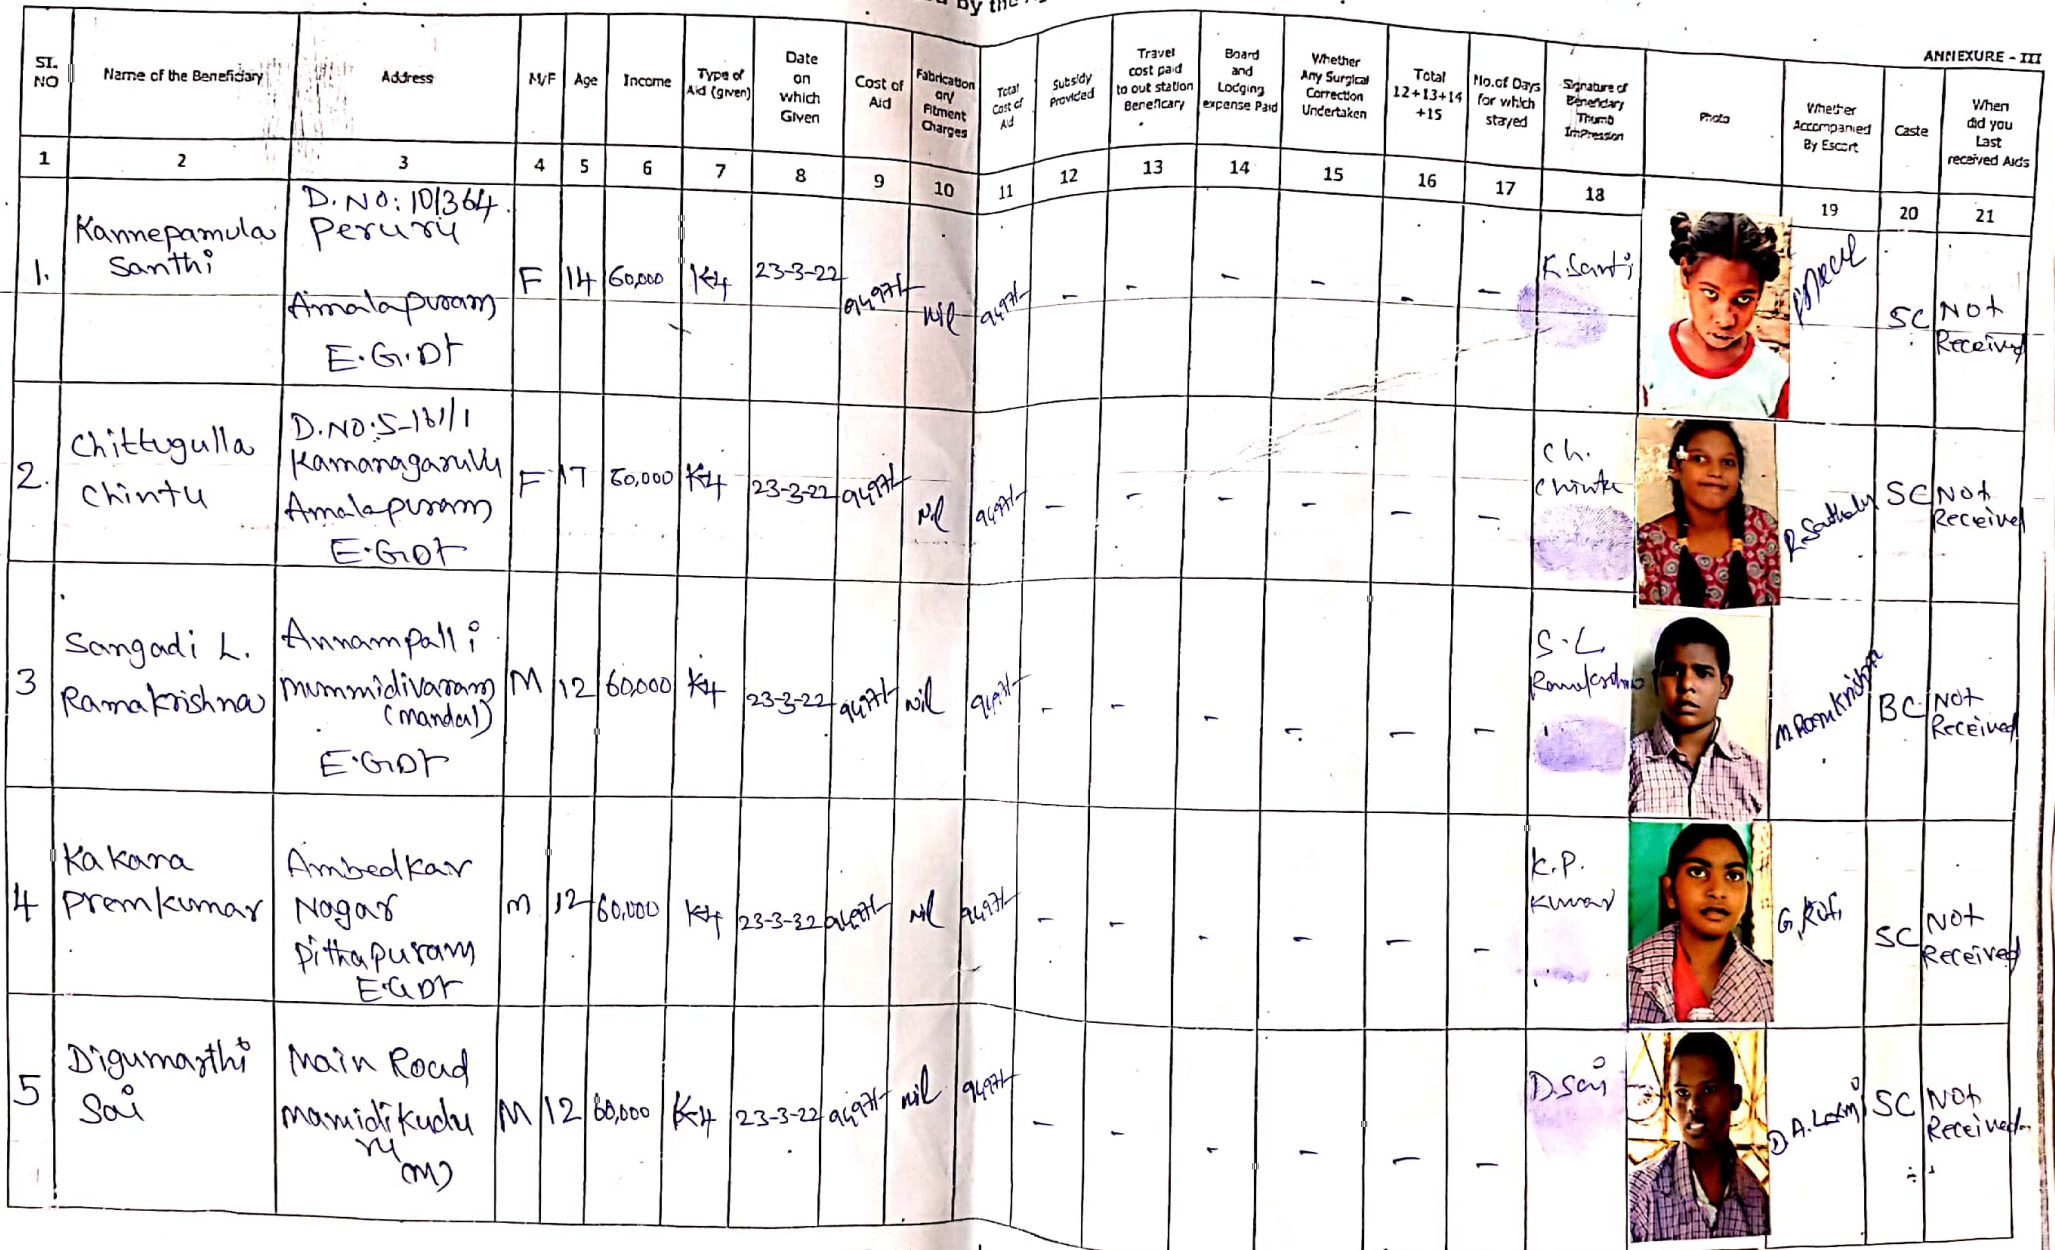 by the
ANNEXURE - III
SI. NO
Name of the Beneficiary
Address
M/F
Age
Income
Type of Aid (given)
Date on which Given
Cost of Aid
Fabrication on/ Fitment Charges
Total Cost of Aid
Subsidy Provided
Travel cost paid to out station Beneficary
Board and Lodging expense Paid
Whether Any Surgical Correction Undertaken
Total 12+13+14 +15
No.of Days for which stayed
Signature of Beneficiary Thumb Impression
Photo
Whether Accompanied By Escort
Caste
When did you Last received Aids
1 2 3 4 5 6 7 8 9 10 11 12 13 14 15 16 17 18 19 20 21
1. Kannepamula Santhi D.NO: 10/364 Peruru Amalapuram E.G.Dt F 14 60,000 K4 23-3-22 9497/- Nil 9497/- - - - - - - K.Santi SC Not Received
2. Chittugulla Chintu D.NO:5-161/1 Kamanagaruvu Amalapuram E.G.Dt F 17 60,000 K4 23-3-22 9497/- Nil 9497/- - - - - - - Ch. Chintu SC Not Received
3 Sangadi L. Ramakrishna Annampalli mummidivaram (mandal) E.G.Dt M 12 60,000 K4 23-3-22 9497/- nil 9497/- - - - - - - S.L. Ramakrishna M.Ramkrishna BC Not Received
4 Kakara Premkumar Ambedkar Nagar Pithapuram E.G.Dt M 12 60,000 K4 23-3-22 9497/- nil 9497/- - - - - - - K.P. Kumar SC Not Received
5 Digumarthi Sai Main Road mamidikuduru (M) M 12 60,000 K4 23-3-22 9497/- nil 9497/- - - - - - - D.Sai D A.Laxmi SC Not Received